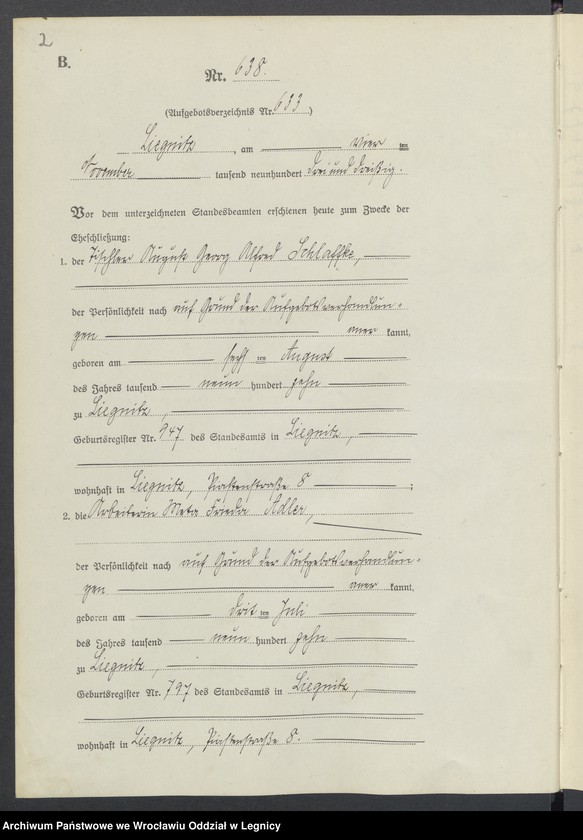 2
B.
Nr. 638.
(Aufgebotsverzeichnis Nr. 633)
Liegnitz, am vier ten
November tausend neunhundert drei und dreißig.
Vor dem unterzeichneten Standesbeamten erschienen heute zum Zwecke der
Eheschließung:
1. der Tischler August Georg Alfred Schlaffke,
der Persönlichkeit nach auf Grund der Aufgebotsverhandlun-
gen aner kannt,
geboren am sechs ten August
des Jahres tausend neun hundert zehn
zu Liegnitz,
Geburtsregister Nr. 947 des Standesamts in Liegnitz,
wohnhaft in Liegnitz, Piastenstraße 8 ;
2. die Arbeiterin Meta Frieda Adler,
der Persönlichkeit nach auf Grund der Aufgebotsverhandlun-
gen aner kannt,
geboren am drit ten Juli
des Jahres tausend neun hundert zehn
zu Liegnitz,
Geburtsregister Nr. 797 des Standesamts in Liegnitz,
wohnhaft in Liegnitz, Piastenstraße 8.
Archiwum Państwowe we Wrocławiu Oddział w Legnicy